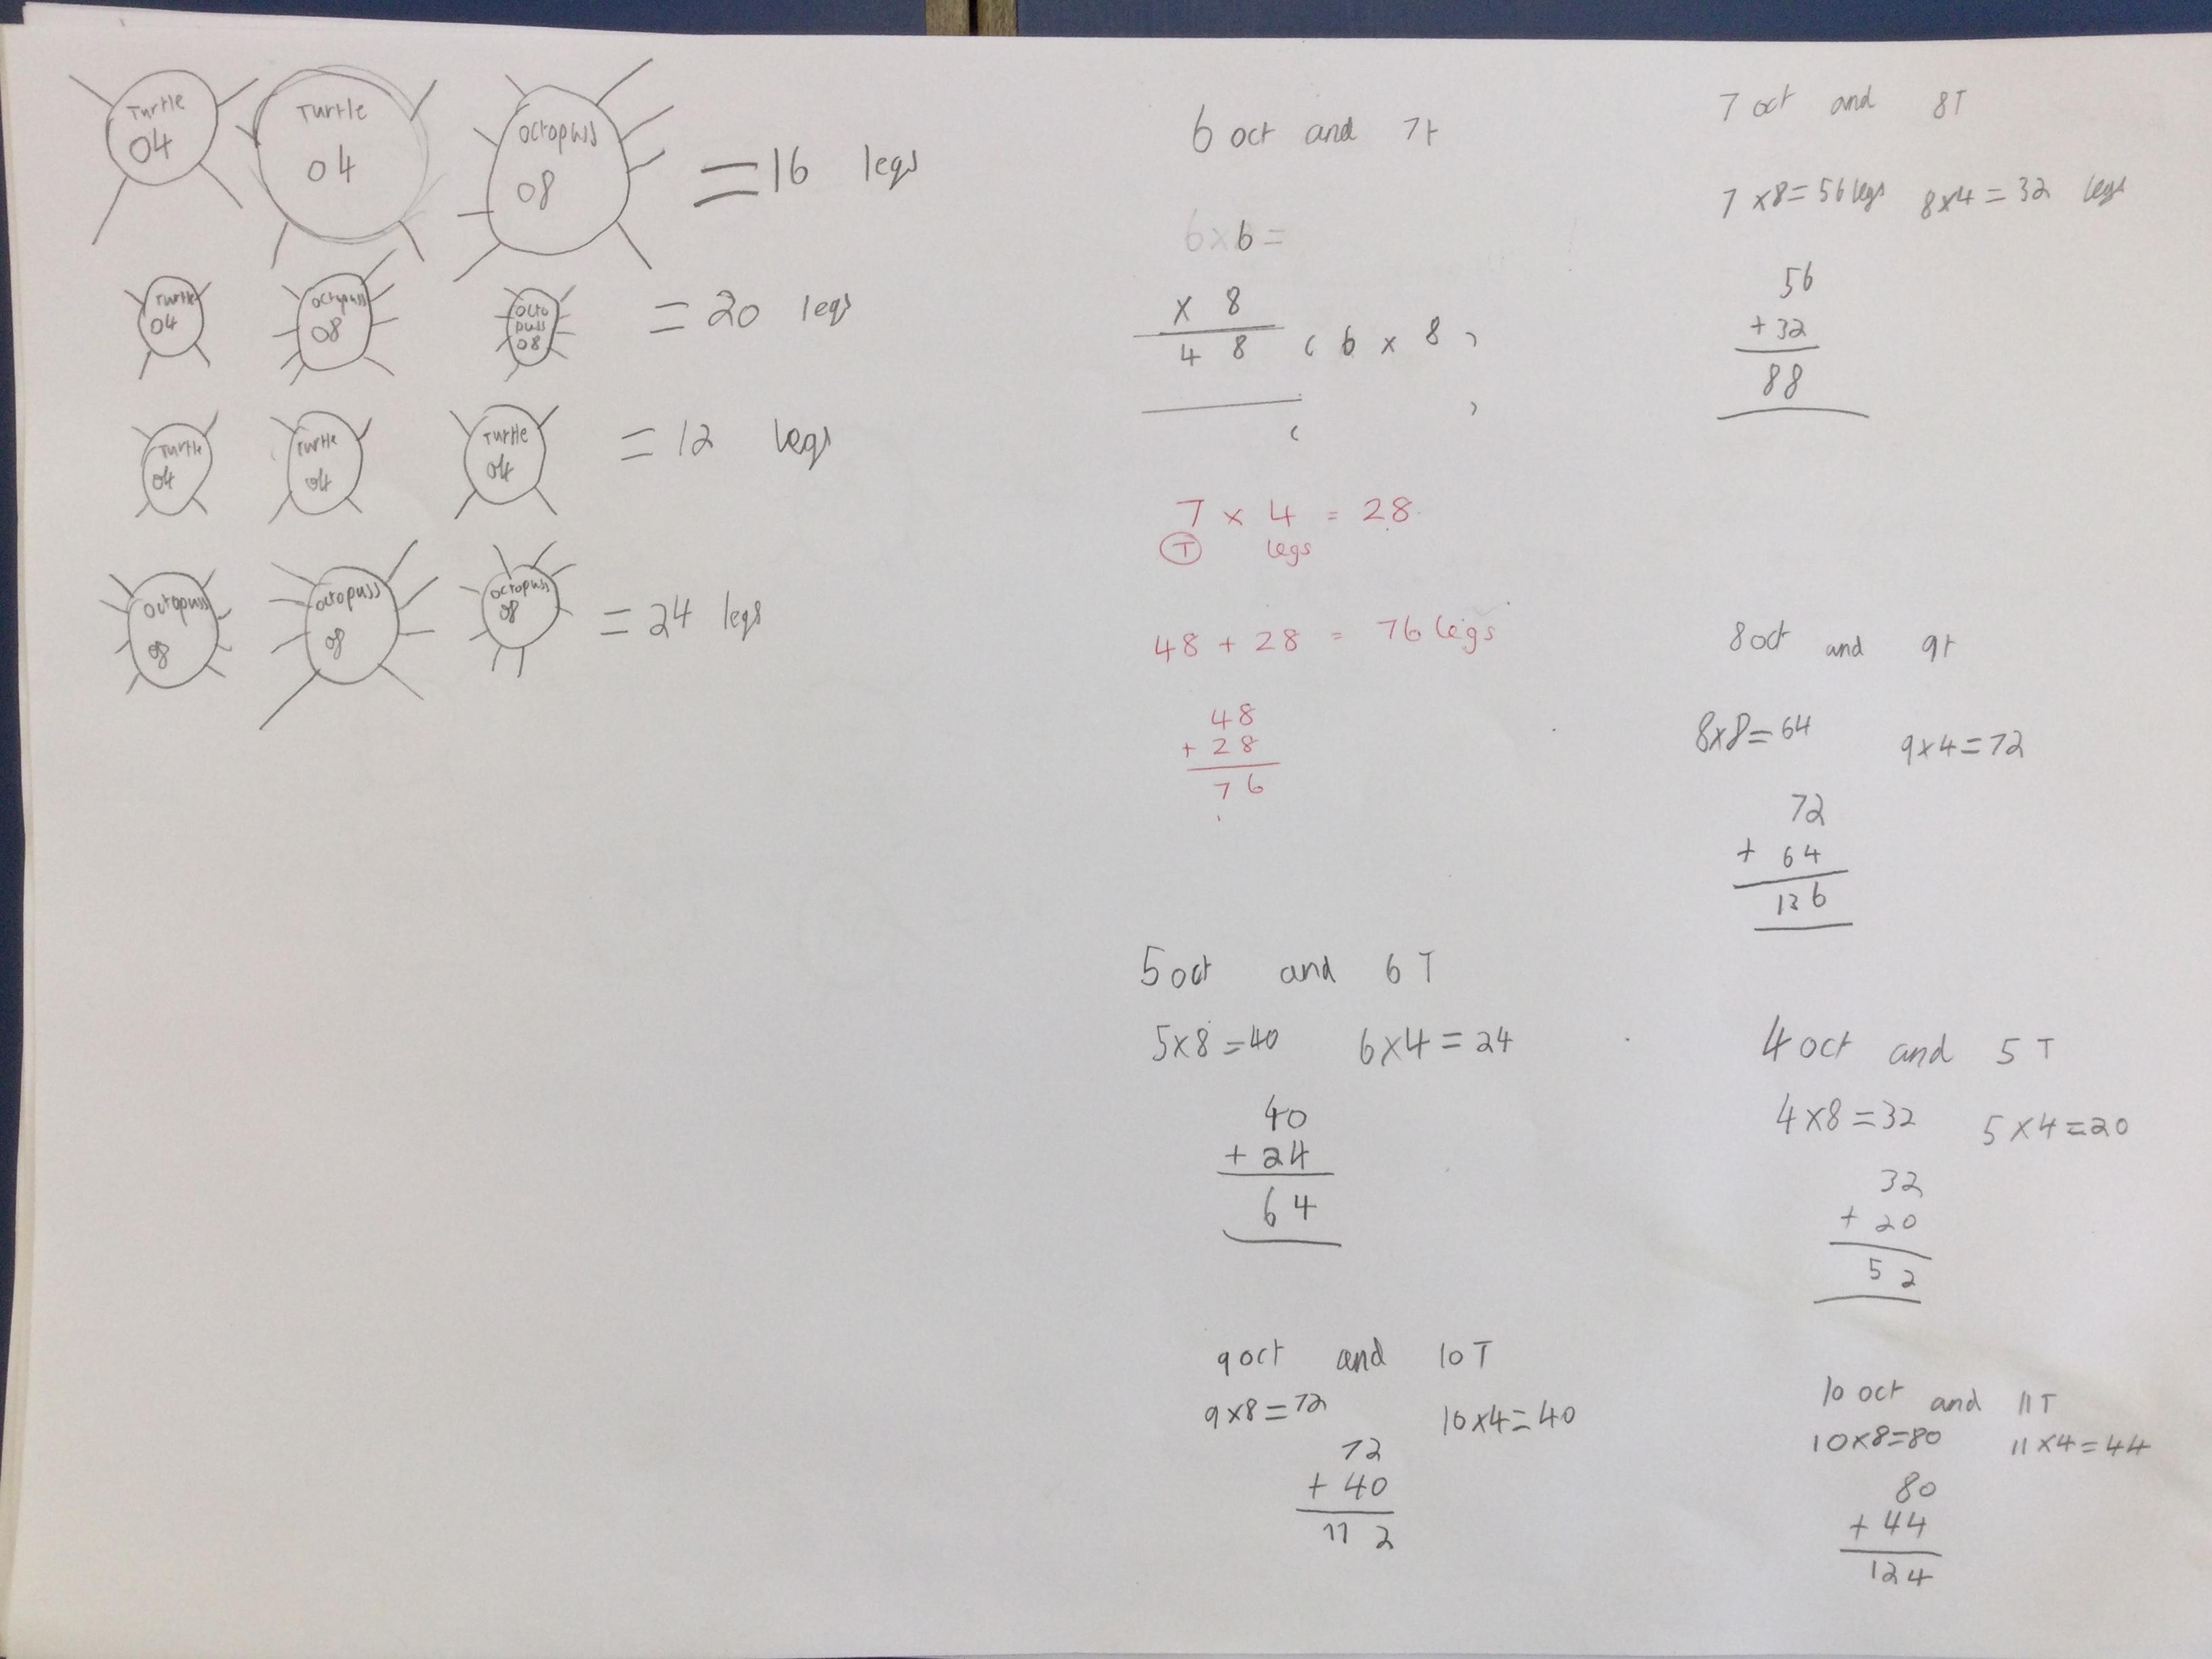 Turtle 04 Turtle 04 octopuss 08 = 16 legs
Turtle 04 octopuss 08 octo puss 08 = 20 legs
Turtle 04 Turtle 04 Turtle 04 = 12 legs
octopuss 08 octopuss 08 octopuss 08 = 24 legs
6 oct and 7t
6x6=
x 8
4 8 ( 6 x 8 )
( )
7 x 4 = 28
T legs
48 + 28 = 76 legs
48
+ 28
76
5 oct and 6 T
5x8=40 6x4=24
40
+ 24
64
9 oct and 10 T
9x8=72 10x4=40
72
+ 40
112
7 oct and 8T
7 x8=56 legs 8x4=32 legs
56
+ 32
88
8 oct and 9t
8x8=64 9x4=72
72
+ 64
136
4 oct and 5 T
4x8=32 5x4=20
32
+ 20
52
10 oct and 11T
10x8=80 11x4=44
80
+ 44
124